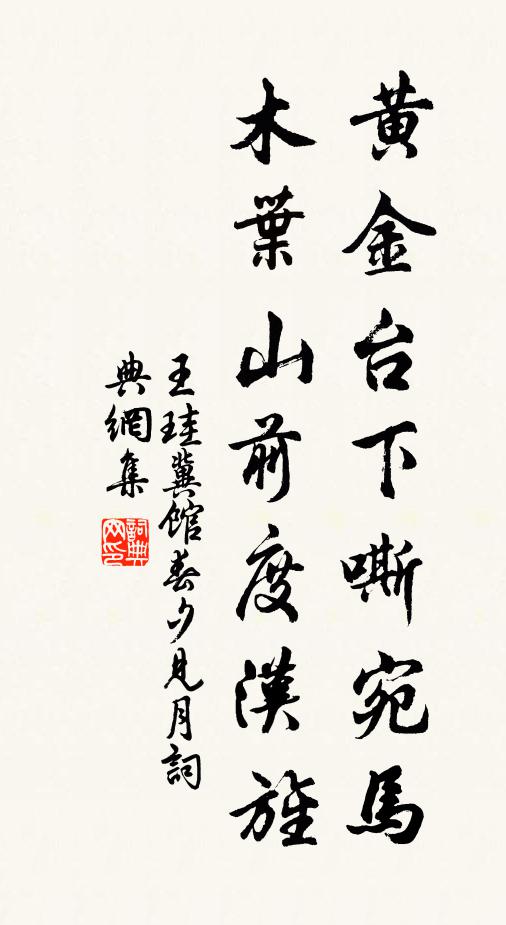 黃金台下嘶宛馬
木葉山前度漢旌
王珪冀館春夕見月詞
典網集
詞典網印